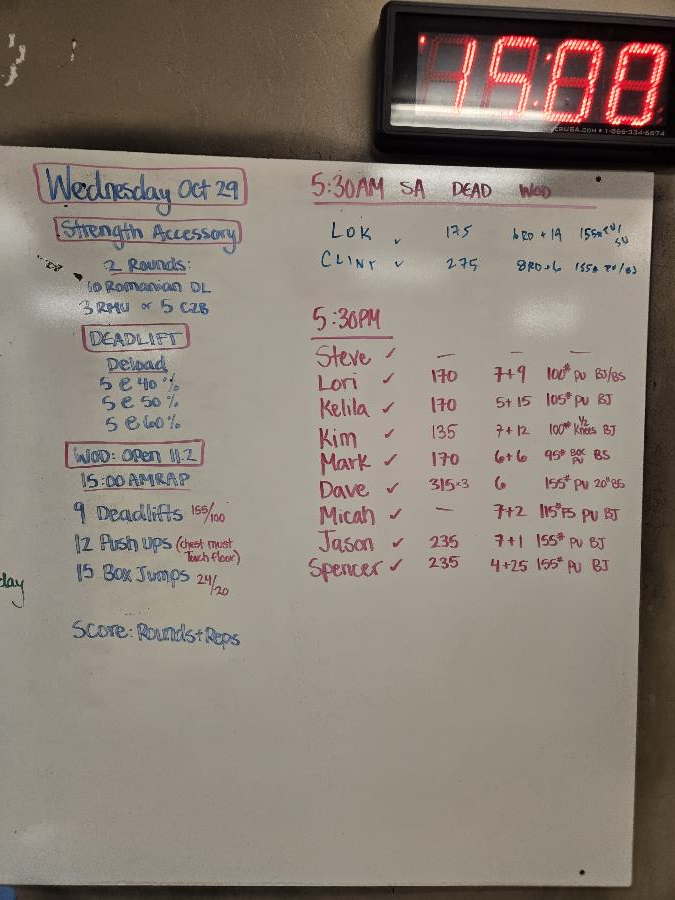 15:00
1-866-334-6674
Wednesday Oct 29
Strength Accessory
2 Rounds:
10 Romanian DL
3 RMU or 5 C2B
DEADLIFT
Deload
5 @ 40%
5 @ 50%
5 @ 60%
WOD: OPEN 11.2
15:00 AMRAP
9 Deadlifts 155/100
12 Push ups (chest must
touch floor)
15 Box Jumps 24/20
Score: Rounds + Reps
day
5:30AM SA DEAD WOD
LOK ✓ 175 6RD + 19 155# PU/SU
CLINT ✓ 275 8RD+6 155# PU/BJ
5:30PM
Steve ✓ — — —
Lori ✓ 170 7+9 100# PU BJ/BS
Kelila ✓ 170 5+15 105# PU BJ
Kim ✓ 135 7+12 100# 1/2 Knees BJ
Mark ✓ 170 6+6 95# BOX PU BS
Dave ✓ 315x3 6 155# PU 20"BS
Micah ✓ — 7+2 115# FS PU BJ
Jason ✓ 235 7+1 155# PU BJ
Spencer ✓ 235 4+25 155# PU BJ